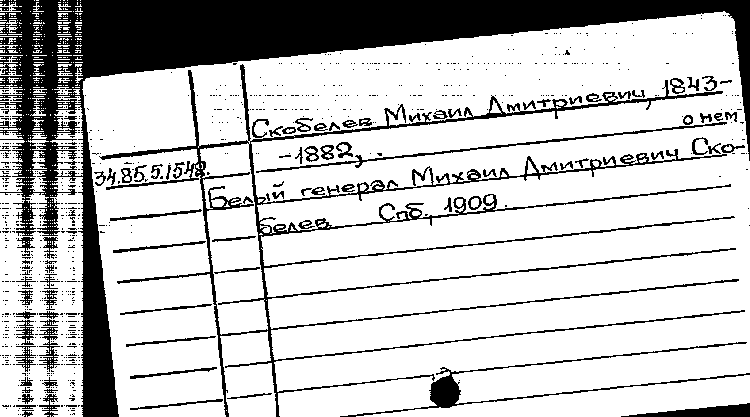 Скобелев Михаил Дмитриевич, 1843-
-1882, . о нем
34.85.5.1542.
Белый генерал Михаил Дмитриевич Ско-
белев. Спб., 1909.